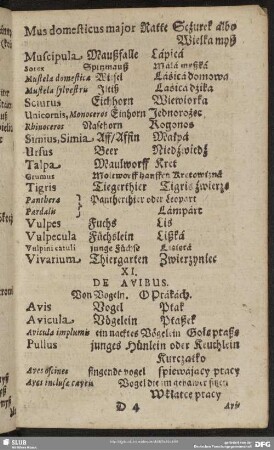 Mus domesticus major Ratte Sčžurek albo
Wielka myß
Muscipula Maußfalle Lápicá
Sorex Spitzmauß Málá myßká
Mustela domestica Wisel Lásicá domowa
Mustela sylvestris Iltiß Lasicá dzika
Sciurus Eichhorn Wiewiorka
Unicornis, Monoceros Einhorn Jednorožec
Rhinoceros Nasehorn Rogonos
Simius, Simia Aff/Affin Málpá
Ursus Beer Niedźwiedź
Talpa Maulworff Kret
Grumus Molworffhauffen Kretowizná
Tigris Tiegerthier Tigris źwierz
Panthera } Pantherthier oder Leopart
Pardalis } Lámpárt
Vulpes Fuchs Lis
Vulpecula Füchslein Lißká
Vulpini catuli junge Füchse
Vivarium Thiergarten Zwierzyniec
XI.
DE AVIBUS.
Von Vögeln. O Ptákách.
Avis Vogel Ptak
Avicula Vögelein Ptaßek
Avicula implumis ein nacktes Vögelein Golę ptaßę
Pullus junges Hünlein oder Keuchlein
Kurczatko
Aves oscines singende vogel spiewájący ptacy
Aves inclusæ caveis Vogel die im gebawer sitzen
W klatce ptacy
D 4 Avis
SLUB